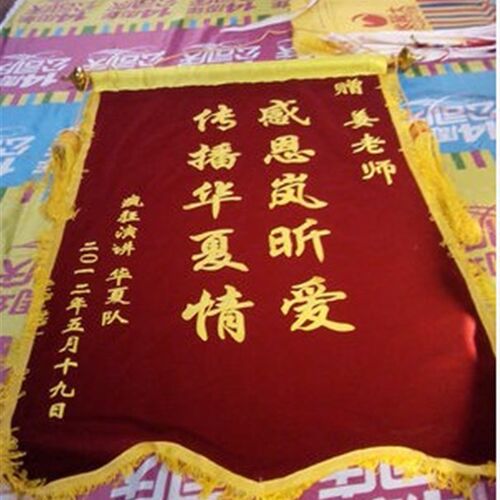 赠 姜老师
感恩岚昕爱
传播华夏情
疯狂演讲 华夏队
二〇一二年五月十九日
14周年
公司庆